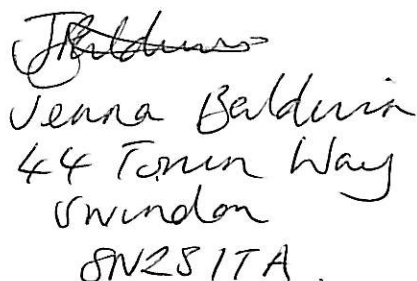 JBaldwin
Jenna Baldwin
44 Tovin Way
Swindon
SN25 1TA.